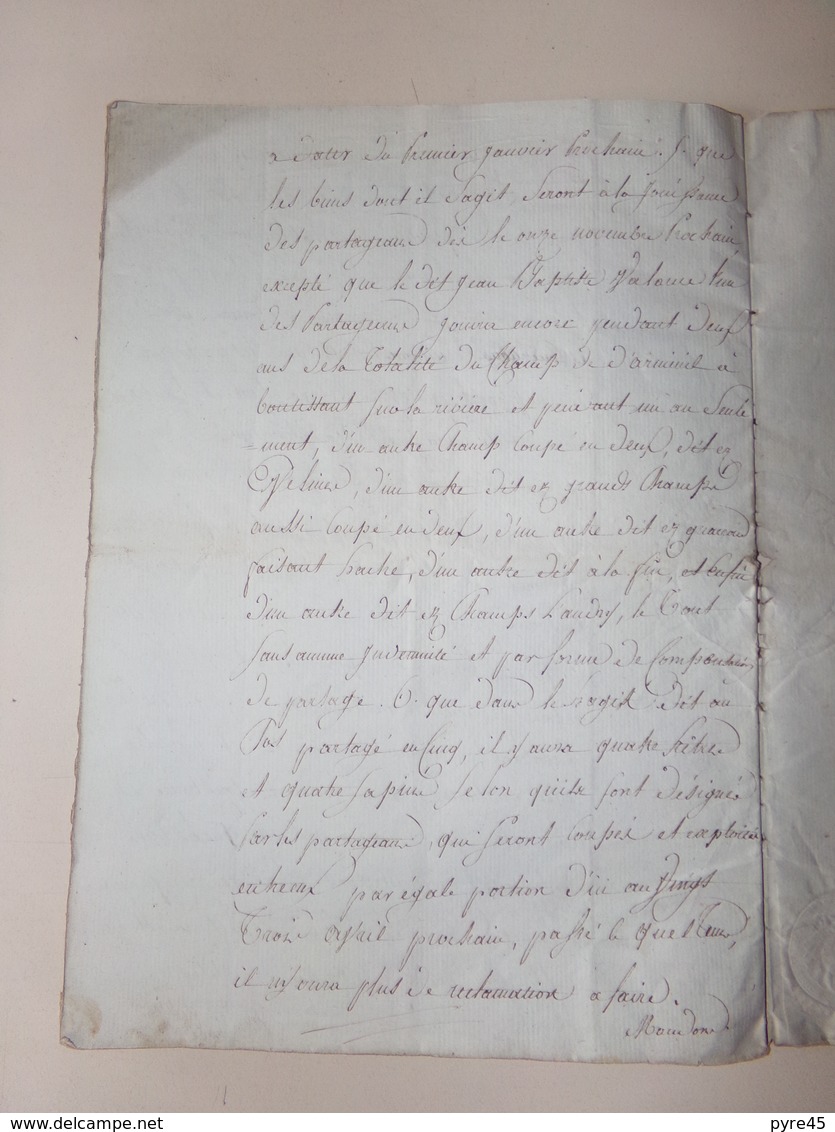 a dater du premier janvier prochain. 5. que
les biens dont il sagit seront à la jouissance
des partageans dès le onze novembre prochain,
excepté que le dit jean Baptiste l'un
des partageans jouira encore pendant deux
ans de la totalité du Champ de à
boutissant sur la rivière et un an seule
=ment, d'un autre Champ coupé en deux, dit ez
d'un autre dit ez grands Champs
aussi coupé en deux, d'un autre dit ez
faisant hache, d'un autre dit à la fin, et enfin
d'un autre dit ez Champs Landry, le tout
sans aucune indemnité et par forme de
de partage. 6. que dans le dit au
partagé en cinq, il y aura quatre hêtres
et quatre sapins selon qu'ils sont désignés
par les partageans, qui seront coupés et exploités
entreeux par égale portion d'ici au vingt
trois avril prochain, passé le quel tems,
il n'y aura plus de reclamation a faire.
DELCAMPE.NET
pyre45